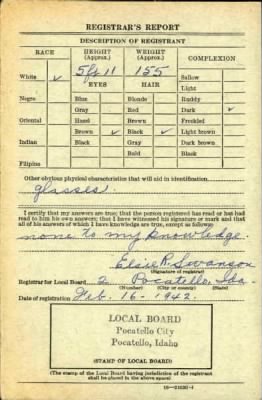 REGISTRAR'S REPORT
DESCRIPTION OF REGISTRANT
RACE HEIGHT (Approx.) WEIGHT (Approx.) COMPLEXION
5 ft 11 155
White ✓ Sallow
EYES HAIR Light
Negro Blue Blonde Ruddy
Gray Red Dark ✓
Oriental Hazel Auburn Freckled
Brown ✓ Black ✓ Light brown
Indian Black Gray Dark brown
Bald Black
Filipino
Other obvious physical characteristics that will aid in identification
glasses
I certify that my answers are true; that the person registered has read or has had
read to him his own answers; that I have witnessed his signature or mark and that
all of his answers of which I have knowledge are true, except as follows:
none to my knowledge.
Elsie R. Swanson
(Signature of registrar)
Registrar for Local Board 2 Pocatello, Ida
(Number) (City or county) (State)
Date of registration Feb. 16 - 1942.
LOCAL BOARD
Pocatello City
Pocatello, Idaho
(STAMP OF LOCAL BOARD)
(The stamp of the Local Board having jurisdiction of the registrant
shall be placed in the above space.)